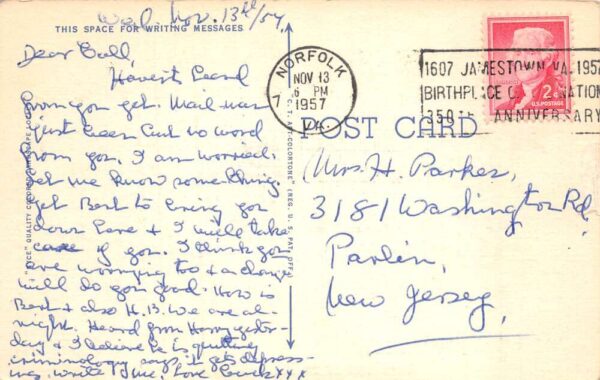 Wed. Nov. 13th/57
THIS SPACE FOR WRITING MESSAGES
Dear
Haven't heard
from you yet. Mail man
just been but no word
from you. I am worried.
Let me know something.
Get Bert to bring you
down here & I will take
care of you. I think you
are worrying too & a change
will do you good. How is
Bert & also H.B. We are al-
right. Heard from Harry yester-
day & I believe he is quitting
criminology says it gets depress-
ing. Write me, Love xxx
NORFOLK
NOV 13
6 PM
1957
VA.
7
1607 JAMESTOWN, VA. 1957
BIRTHPLACE OF NATION
350 ANNIVERSARY
2¢
U.S. POSTAGE
POST CARD
Mrs. H. Parker,
3181 Washington Rd.
Parlin,
New Jersey,
C. T. ART-COLORTONE" (REG. U. S. PAT. OFF.